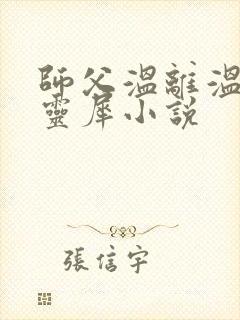 師父溫離溫
靈犀小說
張信宇